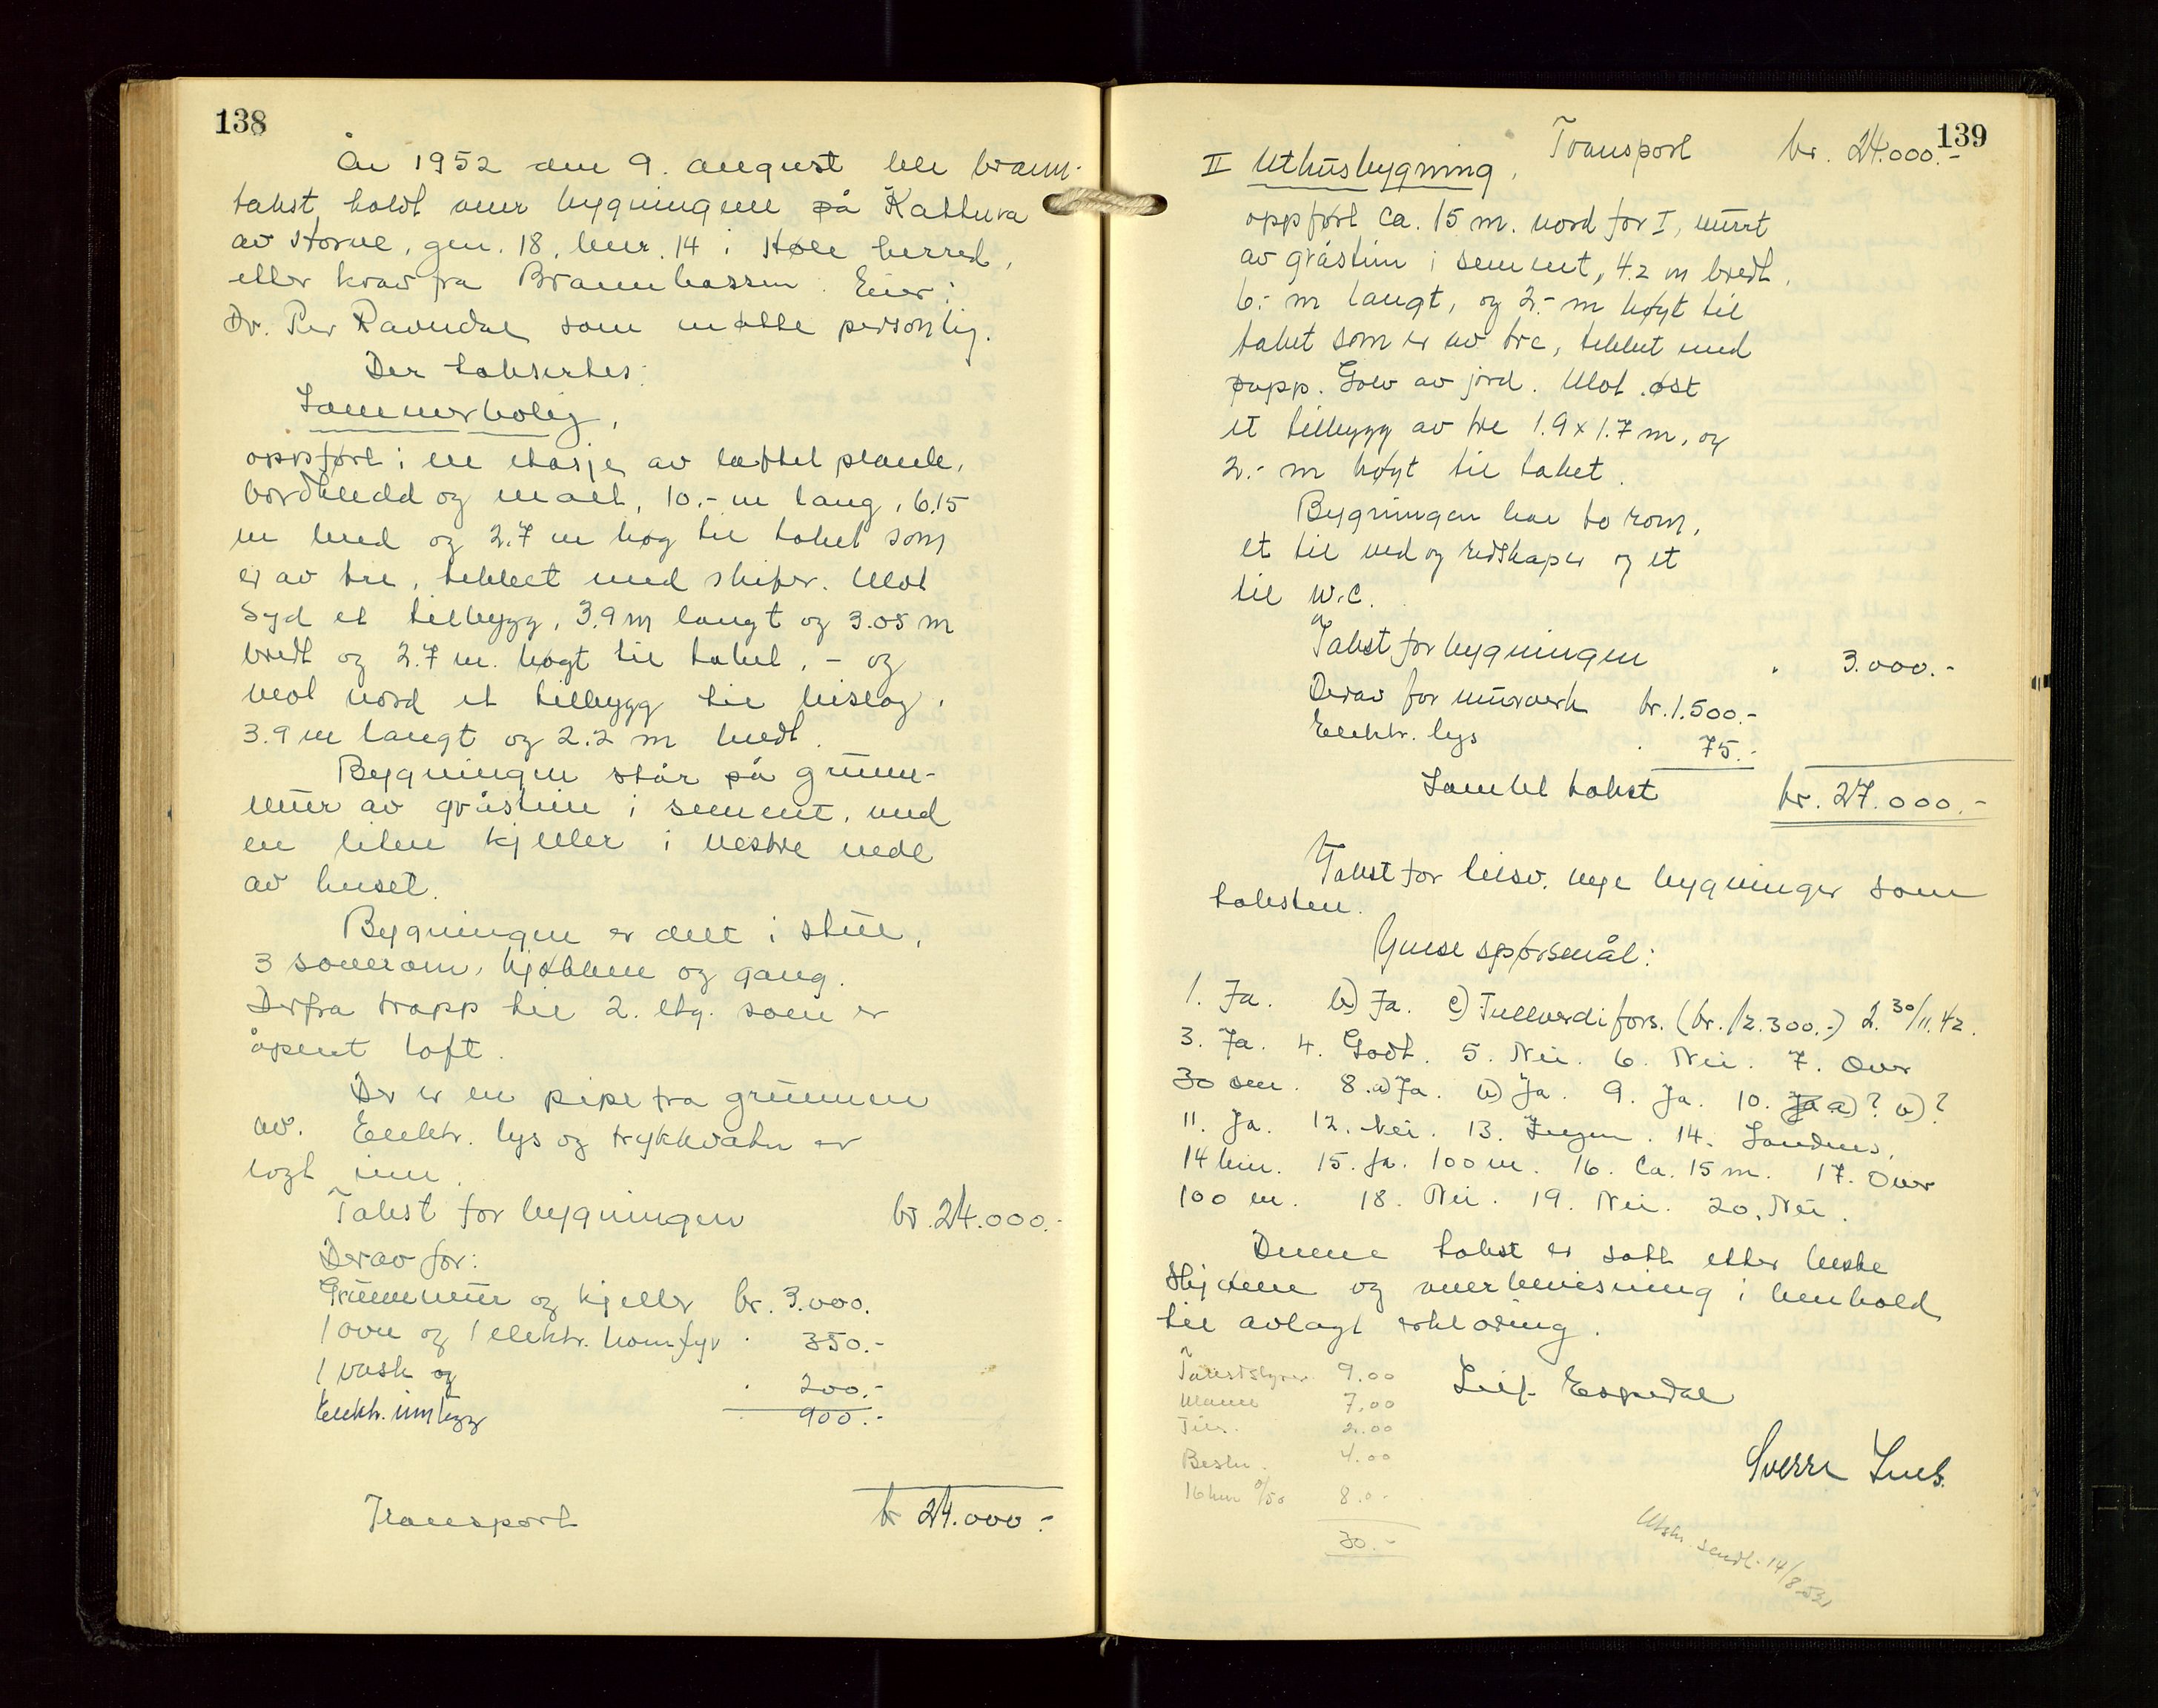 138
År 1952 den 9. august ble brann-
takst holdt over bygningene på Kattuva
av Horne, gnr. 18, bnr. 14 i Høle herred,
etter krav fra Brannkassen. Eier:
Dr. Per Ravndal som møtte personlig.
Der taksertes:
Sommerbolig,
oppført i en etasje av laftet plank,
bordkledd og malt, 10.- m lang, 6.15
m bred og 2.7 m høg til taket som
er av tre, tekket med skifer. Mot
Syd et tilbygg, 3.9 m langt og 3.05 m
bredt og 2.7 m. høgt til taket, - og
mot nord et tilbygg til bislag,
3.9 m langt og 2.2 m bredt.
Bygningen står på grunn-
mur av gråstein i sement, med
en liten kjeller i vestre ende
av huset.
Bygningen er delt i stue,
3 soverom, kjøkken og gang.
Derfra trapp til 2. etg. som er
åpent loft.
Der er en pipe fra grunnen
av. Elektr. lys og trykkvatn er
lagt inn.
Takst for bygningen kr. 24.000.-
Derav for:
Grunnmur og kjeller kr. 3.000.
1 ovn og 1 elektr. komfyr " 350.-
1 vask og " 200.-
Elektr. innlegg 900.-
Transport kr 24.000.-
139
Transport kr. 24.000.-
II Uthusbygning,
oppført ca. 15 m. nord for I, murt
av gråstein i sement, 4.2 m bredt,
6.- m langt, og 2.- m høyt til
taket som er av tre, tekket med
papp. Golv av jord. Mot øst
et tilbygg av tre 1.9 x 1.7 m, og
2.- m høyt til taket.
Bygningen har to rom,
et til ved og redskaper og et
til W.C.
Takst for bygningen " 3.000.-
Derav for murverk kr. 1.500.-
Elektr. lys " 75.-
Samlet takst kr. 27.000.-
Takst for tilsv. nye bygninger som
taksten.
Ymse spørsmål:
1. Ja. b) Ja. c) Fullverdifors. (kr. 12.300.-) 2. 30/11.42.
3. Ja. 4. Godt. 5. Nei. 6. Nei. 7. Over
30 cm. 8. a) Ja. b) Ja. 9. Ja. 10. Ja a) ? b) ?
11. Ja. 12. Nei. 13. Ingen. 14. Sandnes,
14 km. 15. Ja. 100 m. 16. Ca. 15 m. 17. Over
100 m. 18. Nei. 19. Nei. 20. Nei.
Denne takst er satt etter beste
skjønn og overbevisning i henhold
til avlagt erklæring.
Takststyrer 9.00
Mann 7.00
Till. 2.00
Beskr. 4.00
16 km 0/50 8.0-
30.-
Leif Espedal
Sverre
Utskr. sendt 14/8-53